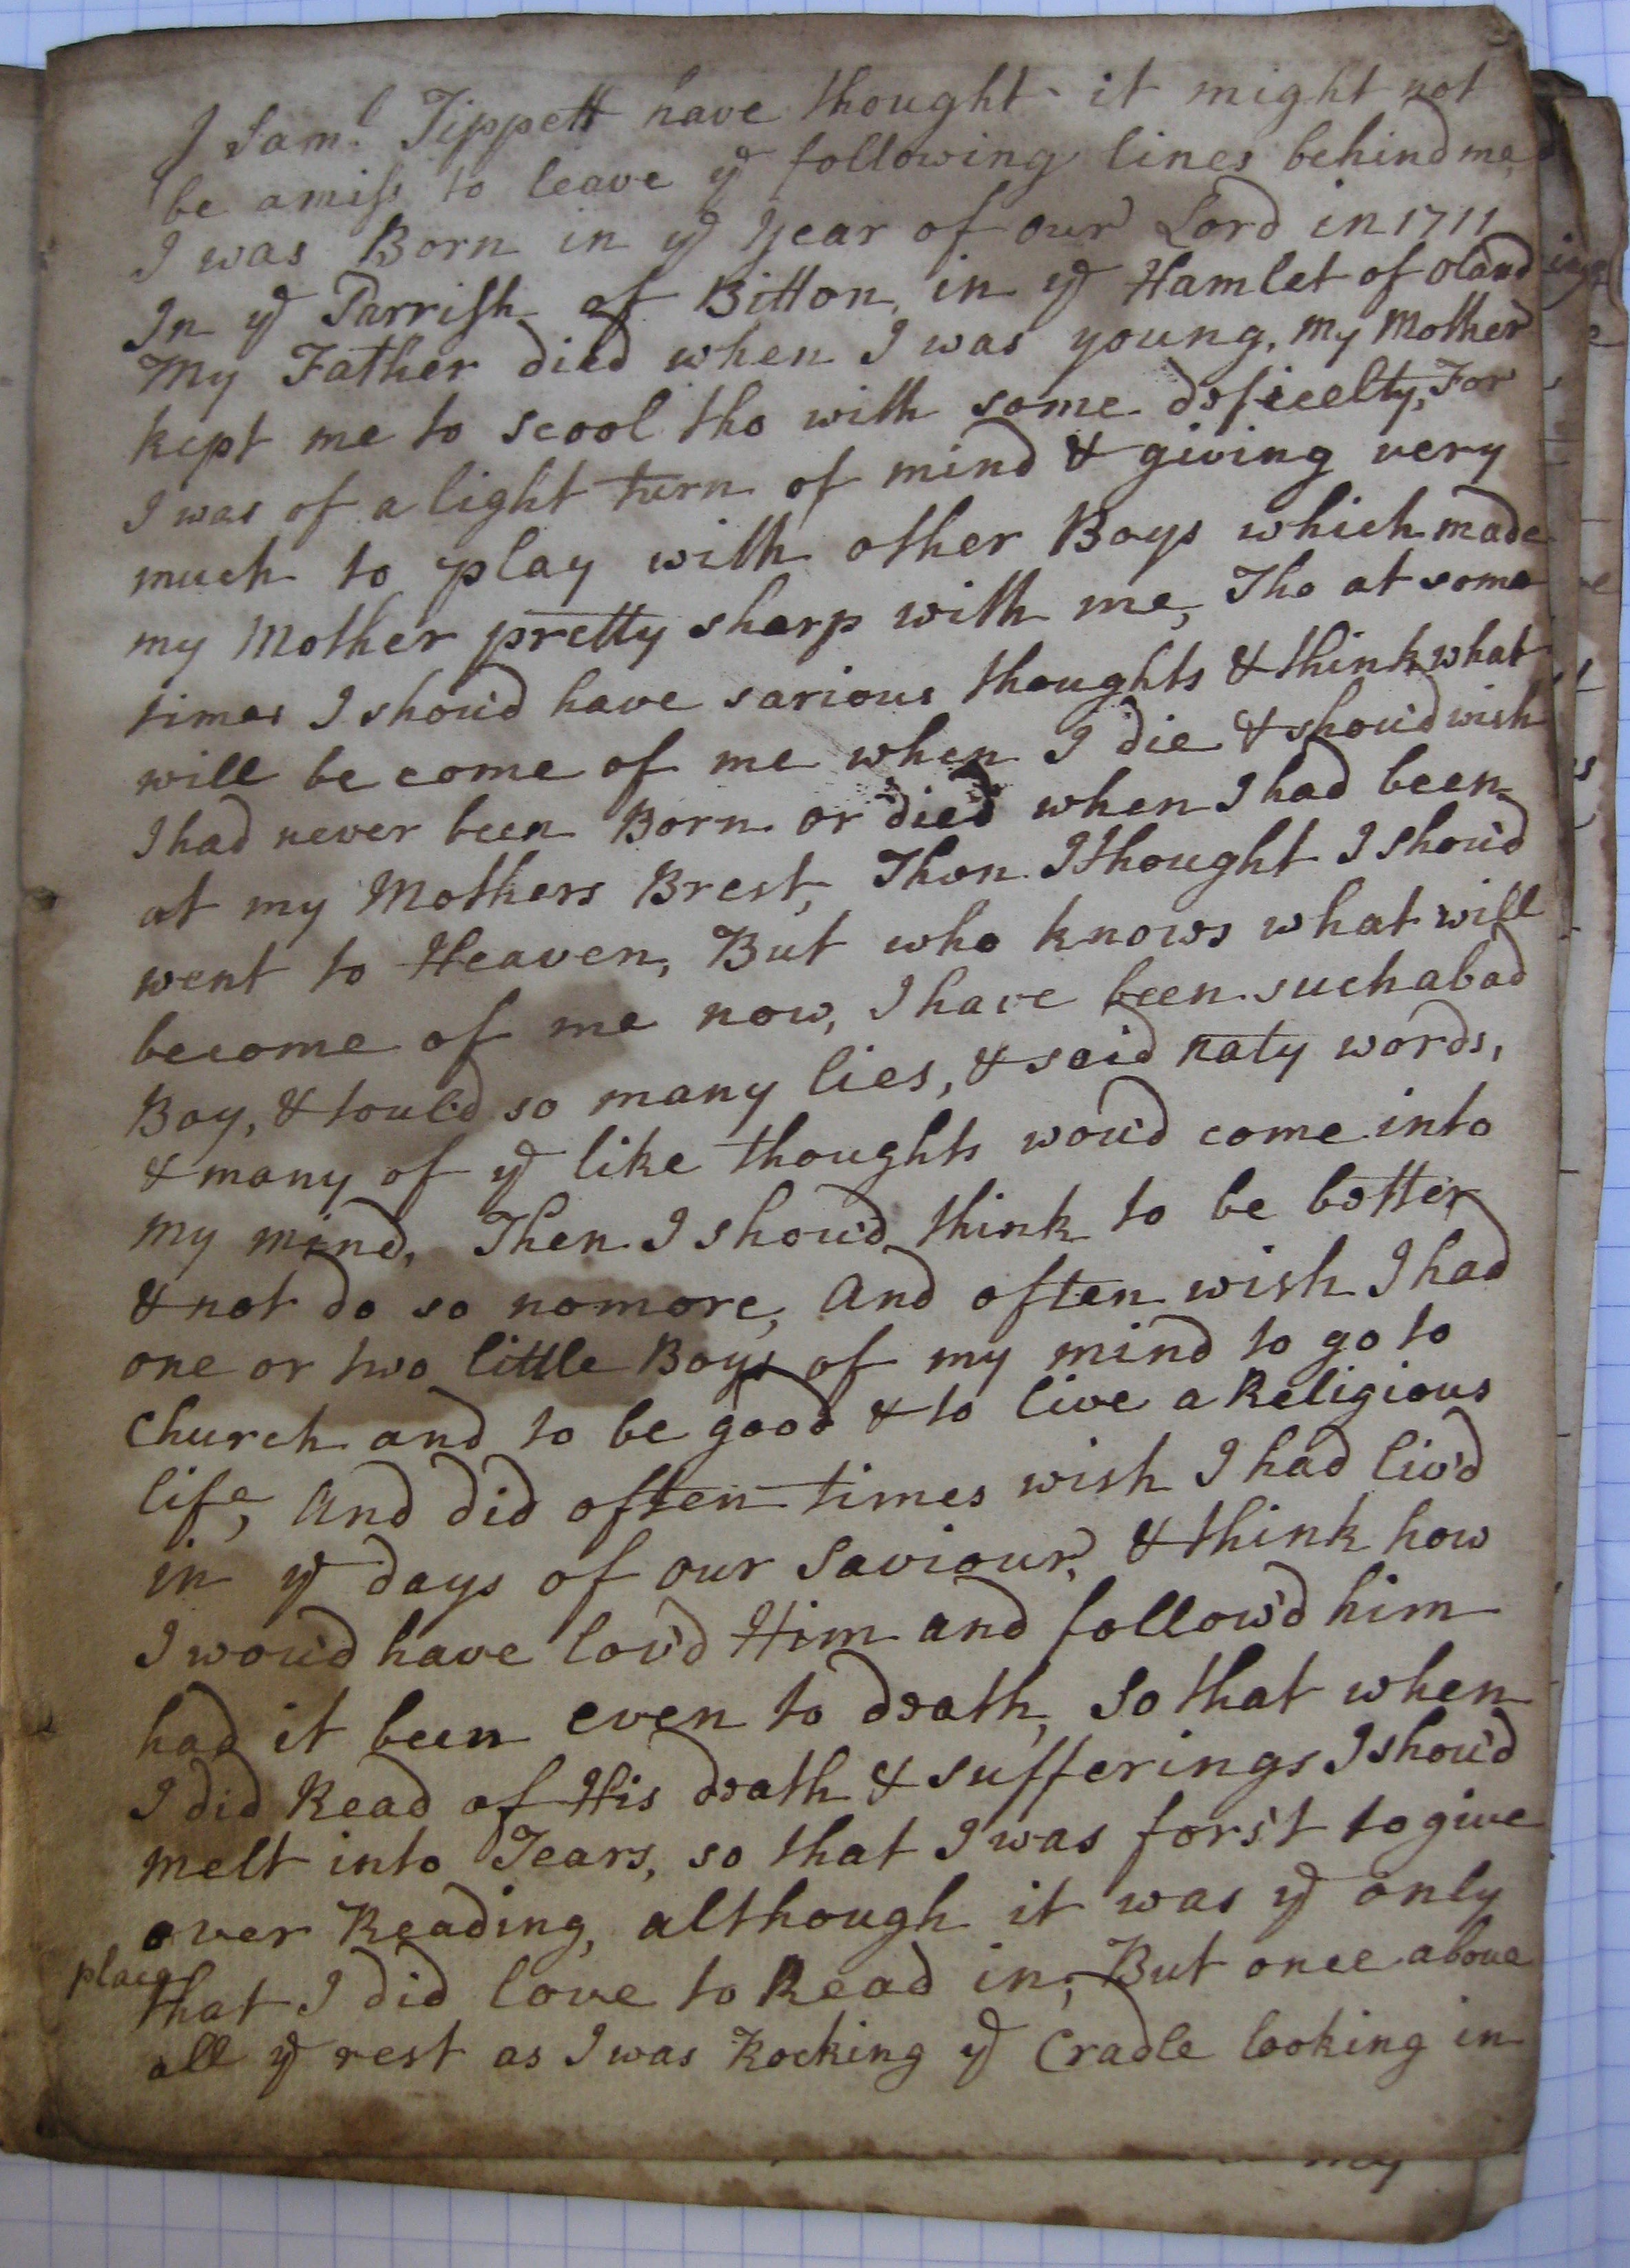 I Sam.l Tippett have thought it might not
be amiſs to leave ye following lines behind me,
I was Born in ye year of our Lord in 1711
In ye Parriſh of Bitton, in ye Hamlet of oland
My Father died when I was young, my Mother
kept me to scool tho with some deficelty, For
I was of a light turn of mind & giving very
much to play with other Boys which made
my Mother pretty sharp with me, Tho at some
times I shou'd have sarious thoughts & think what
will be come of me when I die & shou'd wish
I had never been Born or died when I had been
at my Mothers Brest, Then I thought I shou'd
went to Heaven, But who knows what will
become of me now, I have been such a bad
Boy, & tould so many lies, & said naty words,
& many of ye like thoughts wou'd come into
my mind, Then I shou'd think to be better
& not do so nomore, and often wish I had
one or two little Boys of my mind to go to
Church and to be good & to live a Religious
life, and did often times wish I had liv'd
in ye days of our Saviour, & think how
I wou'd have lov'd Him and follow'd him
had it been even to death, So that when
I did Read of His death & sufferings I shou'd
melt into Tears, so that I was fors't to give
over Reading, although it was ye only
place
that I did love to Read in; But once above
all ye rest as I was Rocking ye Cradle looking in
may